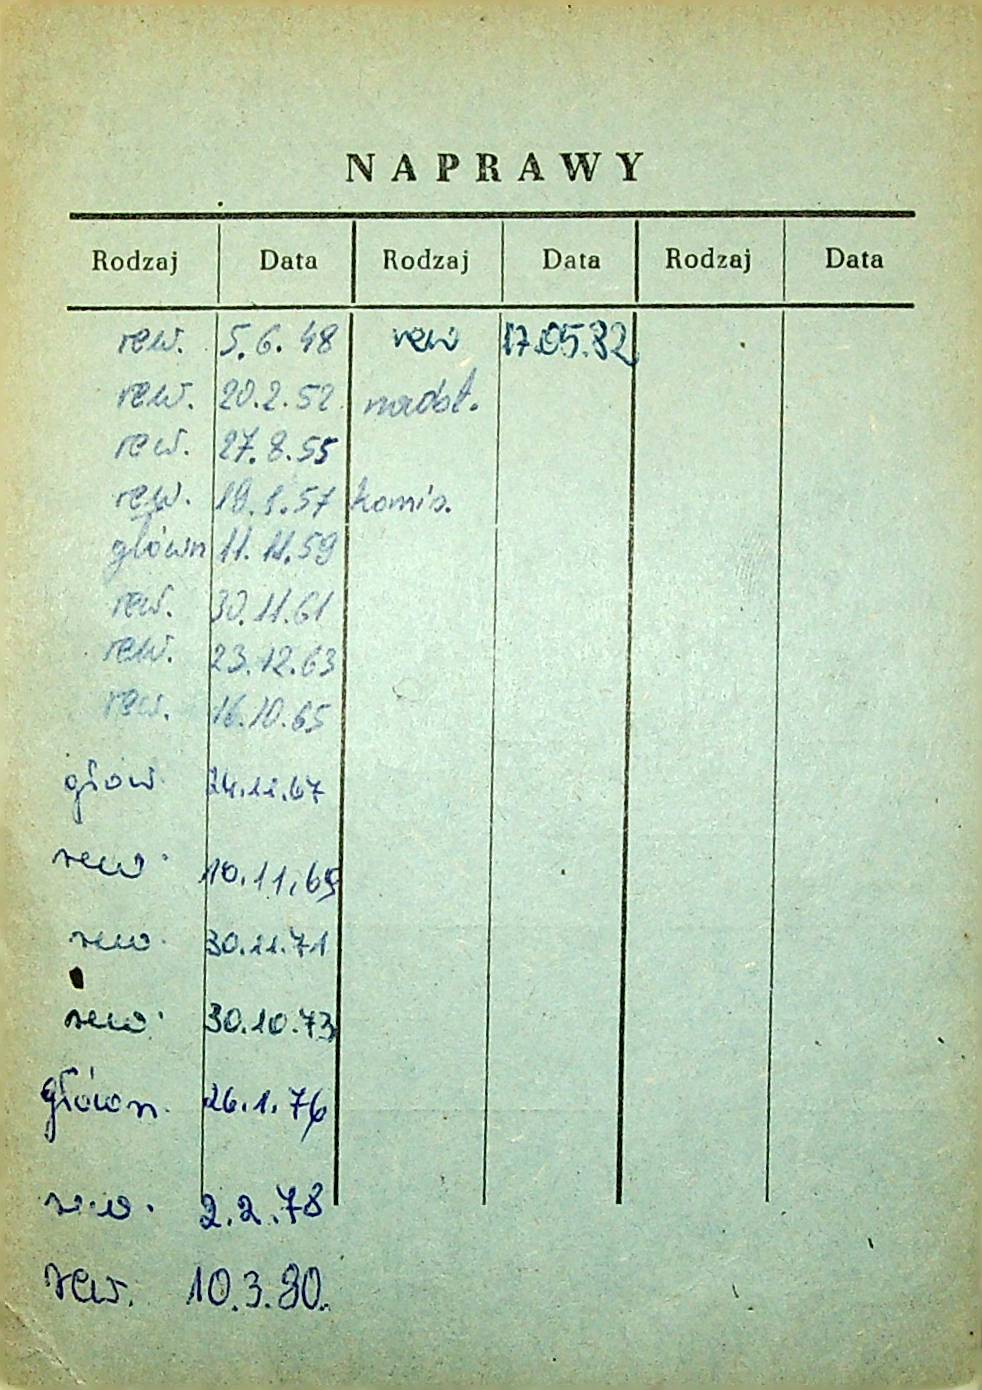 NAPRAWY
Rodzaj Data Rodzaj Data Rodzaj Data
rew. 5.6.48 rew 17.05.82
rew. 20.2.52 nadbł.
rew. 27.8.55
rew. 18.1.57 komis.
główn 11.11.59
rew. 30.11.61
rew. 23.12.63
rew. 16.10.65
głów 24.11.67
rew. 10.11.69
rew. 30.11.71
rew. 30.10.73
główn. 26.1.76
rew. 2.2.78
rew. 10.3.80.